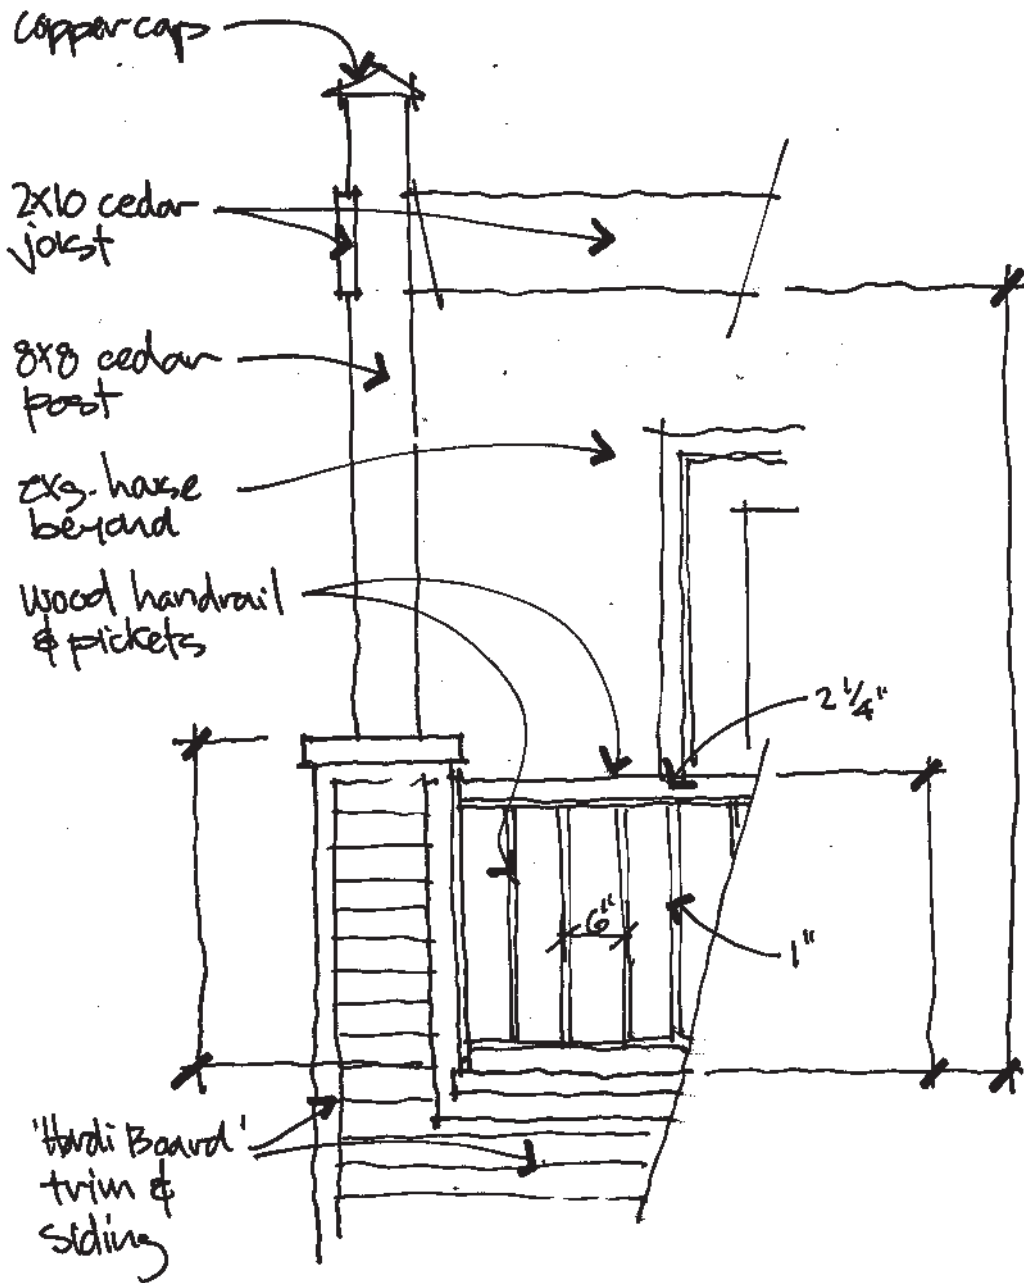 copper cap
2x10 cedar
joist
8x8 cedar
post
exg. house
beyond
wood handrail
& pickets
2 1/4"
6"
1"
'Hardi Board'
trim &
siding